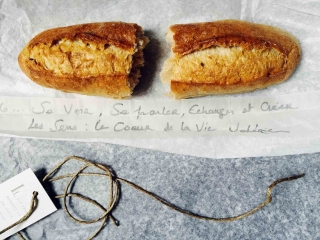 Se Voir, Se parler, Echanger et Créer
Les Sens : le Coeur de la Vie